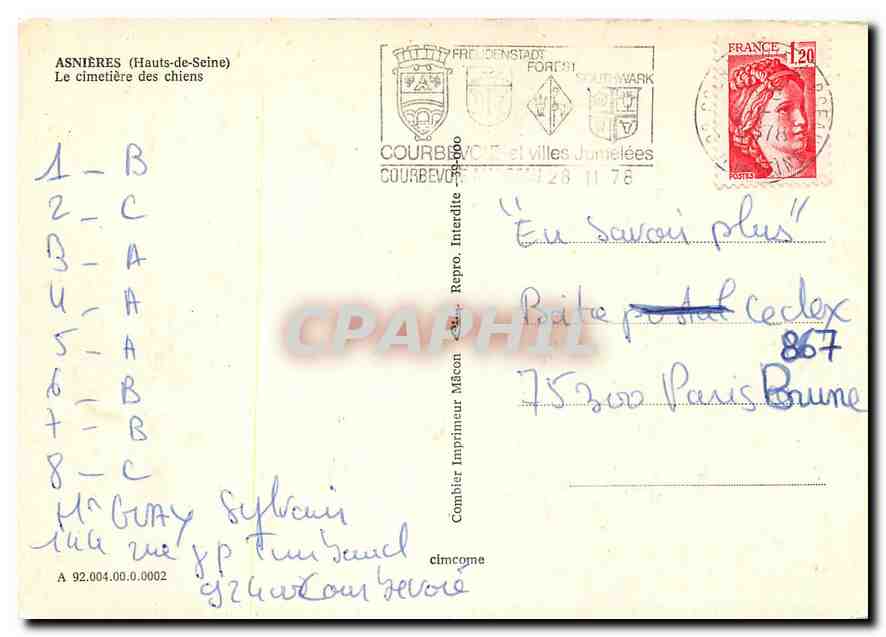 ASNIÈRES (Hauts-de-Seine)
Le cimetière des chiens
FREUDENSTADT
FOREST
SOUTHWARK
COURBEVOIE et villes Jumelées
COURBEVOIE 28 11 78
FRANCE 1,20
POSTES
1 - B
2 - C
3 - A
4 - A
5 - A
6 - B
7 - B
8 - C
Mr GUAY Sylvain
144 rue jp Timbaud
92400 Courbevoie
A 92.004.00.0.0002
Combier Imprimeur Mâcon Repro. Interdite - 39-000
cimcome
"En savoir plus"
Boite postal Cedex
867
75300 Paris Brune
CPAPHIL